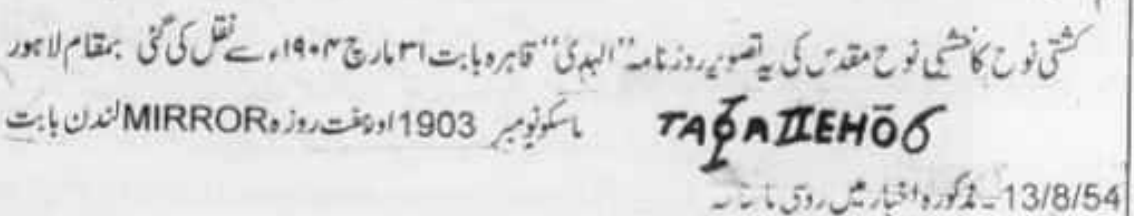 کشتی نوح کا نقشہ نوح مقدس کی یہ تصویر روزنامہ "الہدیٰ" قاہرہ بابت ۳۱ مارچ ۱۹۰۴ء سے نقل کی گئی بمقام لاہور
ماسکو نومبر 1903 اور ہفت روزہ MIRROR لندن بابت
13/8/54 ۔ مذکورہ اخبار میں روسی